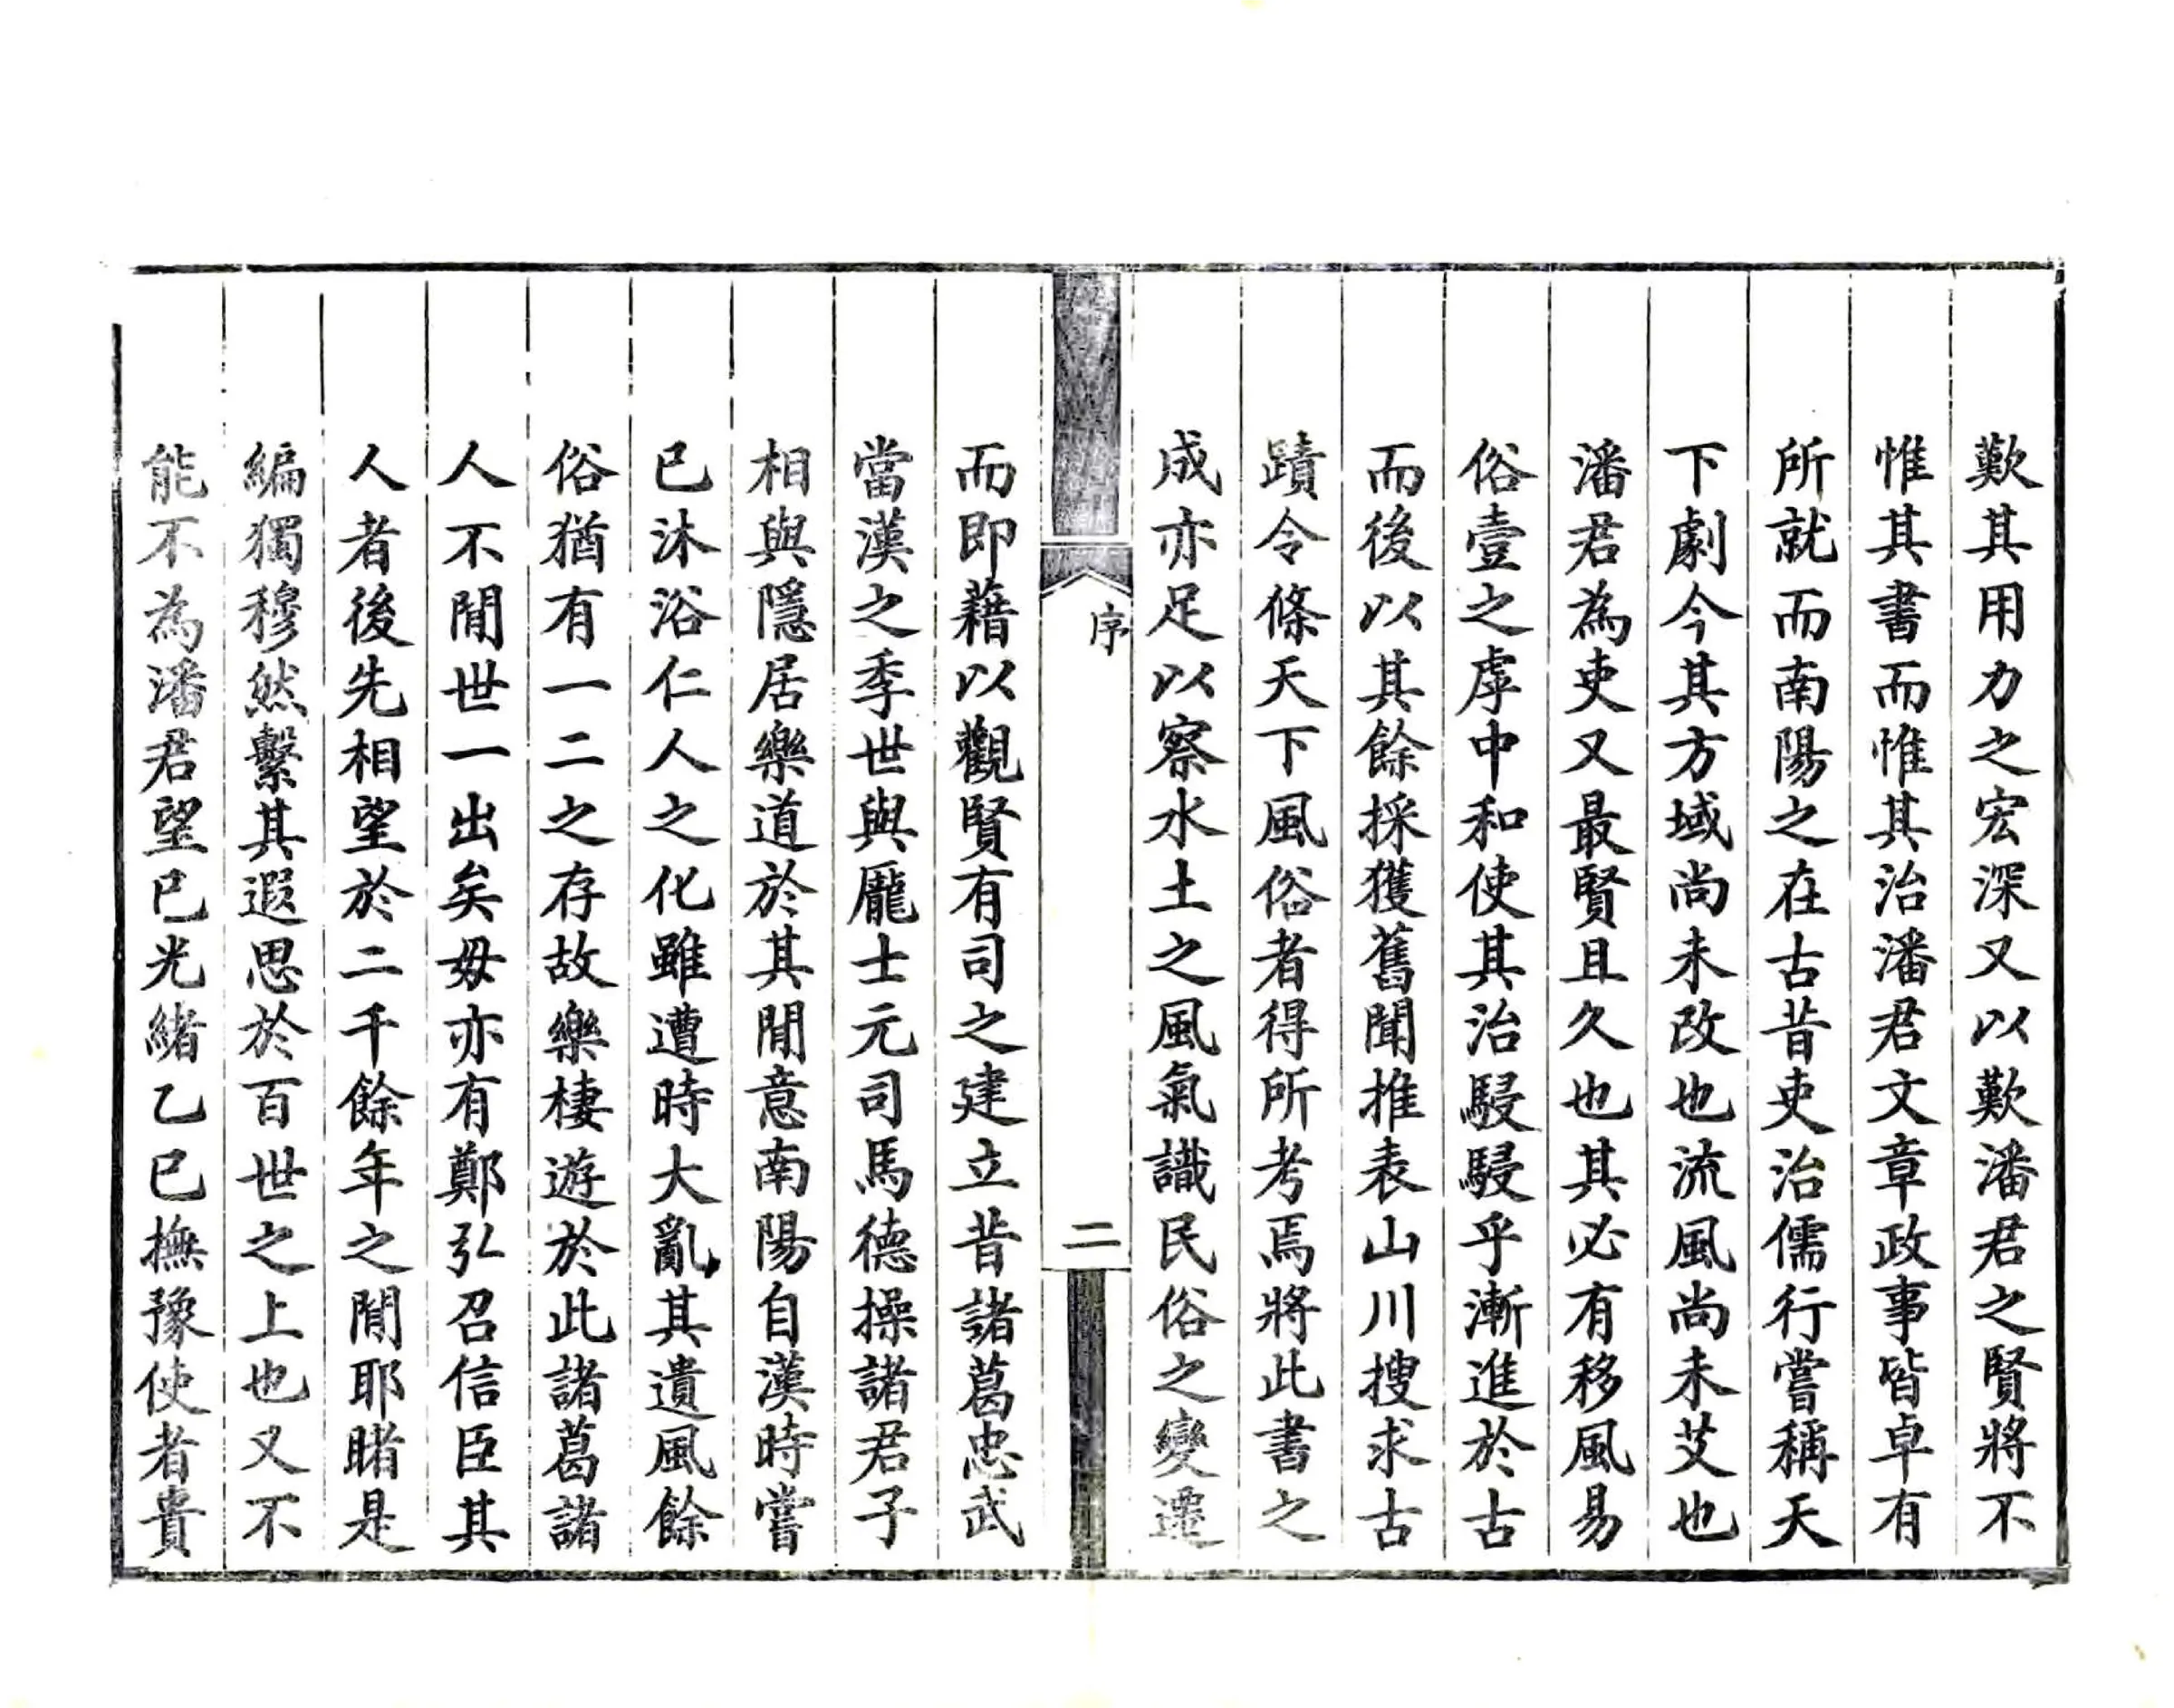 歎其用力之宏深又以歎潘君之賢將不
惟其書而惟其治潘君文章政事皆卓有
所就而南陽之在古昔吏治儒行嘗稱天
下劇今其方域尚未改也流風尚未艾也
潘君為吏又最賢且久也其必有移風易
俗壹之虖中和使其治駸駸乎漸進於古
而後以其餘採獲舊聞推表山川搜求古
蹟令條天下風俗者得所考焉將此書之
成亦足以察水土之風氣識民俗之變遷
序
二
而即藉以觀賢有司之建立昔諸葛忠武
當漢之季世與龐士元司馬德操諸君子
相與隱居樂道於其閒意南陽自漢時嘗
已沐浴仁人之化雖遭時大亂其遺風餘
俗猶有一二之存故樂棲遊於此諸葛諸
人不閒世一出矣毋亦有鄭弘召信臣其
人者後先相望於二千餘年之閒耶睹是
編獨穆然繫其遐思於百世之上也又不
能不為潘君望已光緒乙巳撫豫使者貴